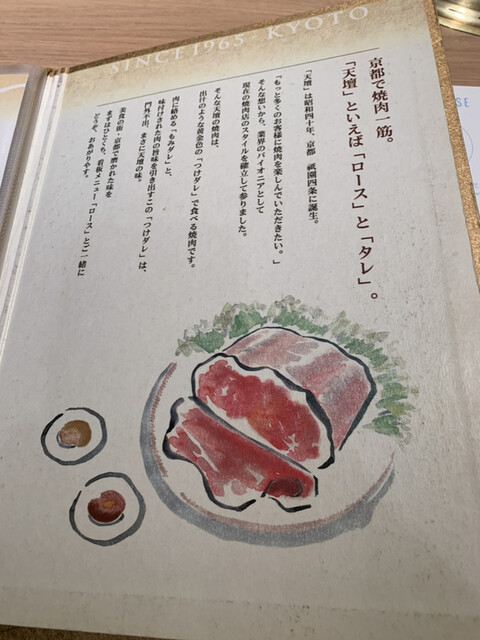 SINCE 1965 - KYOTO
京都で焼肉一筋。
「天壇」といえば「ロース」と「タレ」。
「天壇」は昭和四十年、京都 祇園四条に誕生。
「もっと多くのお客様に焼肉を楽しんでいただきたい。」
そんな想いから、業界のパイオニアとして
現在の焼肉店のスタイルを確立して参りました。
そんな天壇の焼肉は、
出汁のような黄金色の「つけダレ」で食べる焼肉です。
肉に絡める「もみダレ」と、
味付けされた肉の旨味を引き出すこの「つけダレ」は、
門外不出、まさに天壇の味。
美食の街・京都で磨かれた味を
まずはひとくち、看板メニュー「ロース」とご一緒に
どうぞ、おあがりやす。